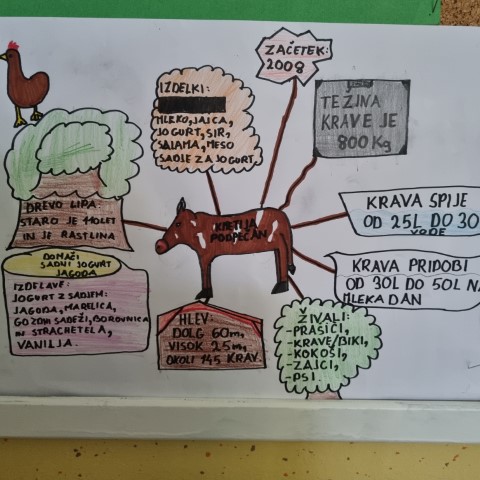 ZAČETEK:
2008
IZDELKI:
MLEKO, JAJCA,
JOGURT, SIR,
SALAMA, MESO
SADJE ZA JOGURT.
TEŽINA
KRAVE JE
800 Kg
DREVO LIPA:
STARO JE 110 LET
IN JE RASTLINA
KMETIJA
PODPEČAN
KRAVA SPIJE
OD 25L DO 30
VODE
DOMAČI
SADNI JOGURT
JAGODA
KRAVA PRIDOBI
OD 30L DO 50L NA
MLEKA DAN
IZDELAVE:
JOGURT Z SADJEM:
JAGODA, MARELICA,
GOZDNI SADEŽI, BOROVNICA
IN STRACHETELA,
VANILJA.
HLEV:
DOLG 60m,
VISOK 25m,
OKOLI 145 KRAV.
ŽIVALI:
-PRAŠIČI,
-KRAVE/BIKI,
-KOKOŠI,
-ZAJCI,
-PSI.